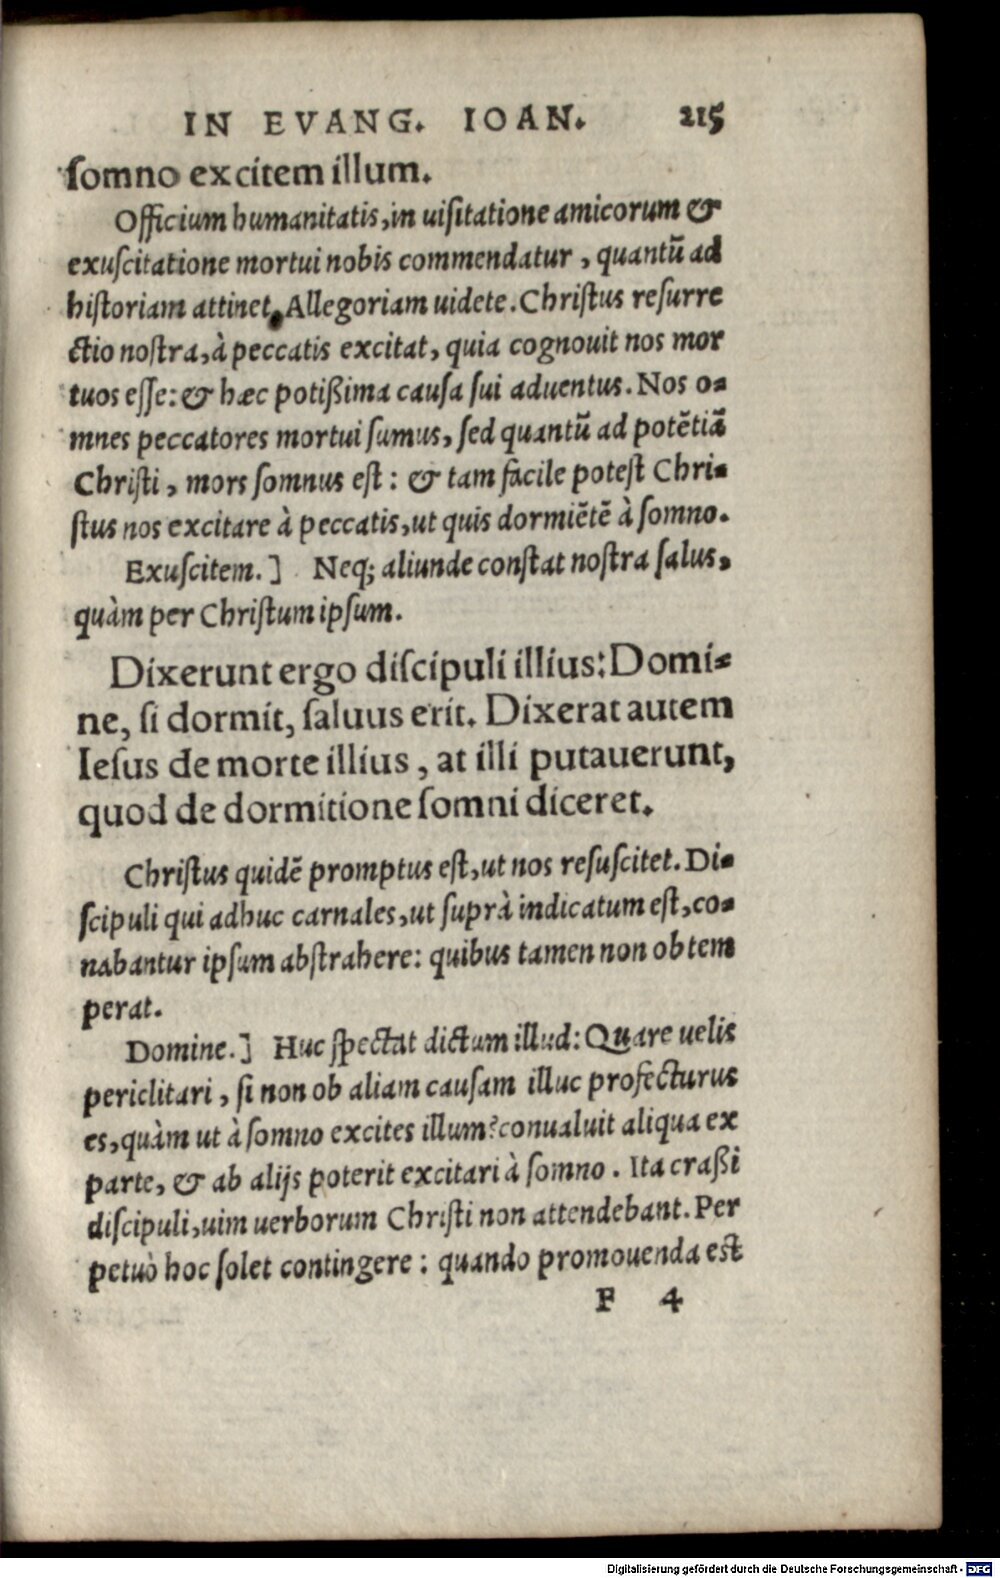 IN EVANG. IOAN. 215
ſomno excitem illum.
Officium humanitatis, in uiſitatione amicorum &
exuſcitatione mortui nobis commendatur, quantũ ad
hiſtoriam attinet. Allegoriam uidete. Chriſtus reſurre
ctio noſtra, à peccatis excitat, quia cognouit nos mor
tuos eſſe: & hæc potißima cauſa ſui aduentus. Nos o-
mnes peccatores mortui ſumus, ſed quantũ ad potẽtiã
Chriſti, mors ſomnus eſt: & tam facile poteſt Chri-
ſtus nos excitare à peccatis, ut quis dormiẽtẽ à ſomno.
Exuſcitem.] Neq; aliunde conſtat noſtra ſalus,
quàm per Chriſtum ipſum.
Dixerunt ergo diſcipuli illius: Domi-
ne, ſi dormit, ſaluus erit. Dixerat autem
Ieſus de morte illius, at illi putauerunt,
quod de dormitione ſomni diceret.
Chriſtus quidẽ promptus eſt, ut nos reſuſcitet. Di-
ſcipuli qui adhuc carnales, ut ſuprà indicatum eſt, co-
nabantur ipſum abſtrahere: quibus tamen non obtem
perat.
Domine.] Huc ſpectat dictum illud: Quare uelis
periclitari, ſi non ob aliam cauſam illuc profecturus
es, quàm ut à ſomno excites illum? conualuit aliqua ex
parte, & ab alijs poterit excitari à ſomno. Ita craßi
diſcipuli, uim uerborum Chriſti non attendebant. Per
petuò hoc ſolet contingere: quando promouenda eſt
F 4
Digitalisierung gefördert durch die Deutsche Forschungsgemeinschaft - DFG